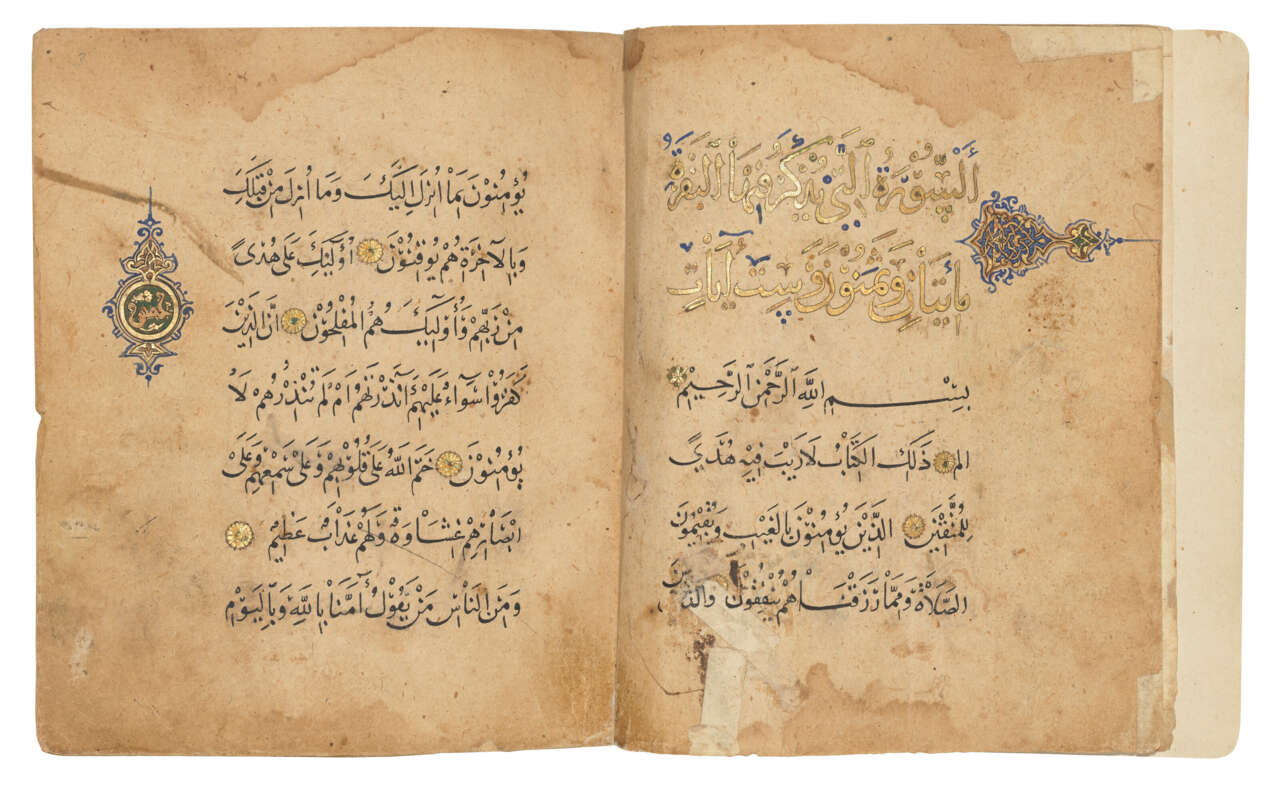 أَلسُّوْرَةُ الَّتِي يُذْكَرُ فِيْهَا الْبَقَرَةُ
مِائَتَانِ وَثَمَنُوْنَ وَسِتُّ آيَاتٍ
بِسْمِ اللَّهِ الرَّحْمَنِ الرَّحِيْمِ
الم ذَلِكَ الْكِتَابُ لَا رَيْبَ فِيْهِ هُدًى
لِلْمُتَّقِيْنَ الَّذِيْنَ يُؤْمِنُوْنَ بِالْغَيْبِ وَيُقِيْمُوْنَ
الصَّلَاةَ وَمِمَّا رَزَقْنَاهُمْ يُنْفِقُوْنَ وَالَّذِيْنَ
يُؤْمِنُوْنَ بِمَا أُنْزِلَ إِلَيْكَ وَمَا أُنْزِلَ مِنْ قَبْلِكَ
وَبِالْآخِرَةِ هُمْ يُوْقِنُوْنَ أُوْلَئِكَ عَلَى هُدًى
مِنْ رَبِّهِمْ وَأُوْلَئِكَ هُمُ الْمُفْلِحُوْنَ إِنَّ الَّذِيْنَ
كَفَرُوْا سَوَاءٌ عَلَيْهِمْ ءَأَنْذَرْتَهُمْ أَمْ لَمْ تُنْذِرْهُمْ لَا
يُؤْمِنُوْنَ خَتَمَ اللَّهُ عَلَى قُلُوْبِهِمْ وَعَلَى سَمْعِهِمْ وَعَلَى
أَبْصَارِهِمْ غِشَاوَةٌ وَلَهُمْ عَذَابٌ عَظِيْمٌ
وَمِنَ النَّاسِ مَنْ يَقُوْلُ آمَنَّا بِاللَّهِ وَبِالْيَوْمِ